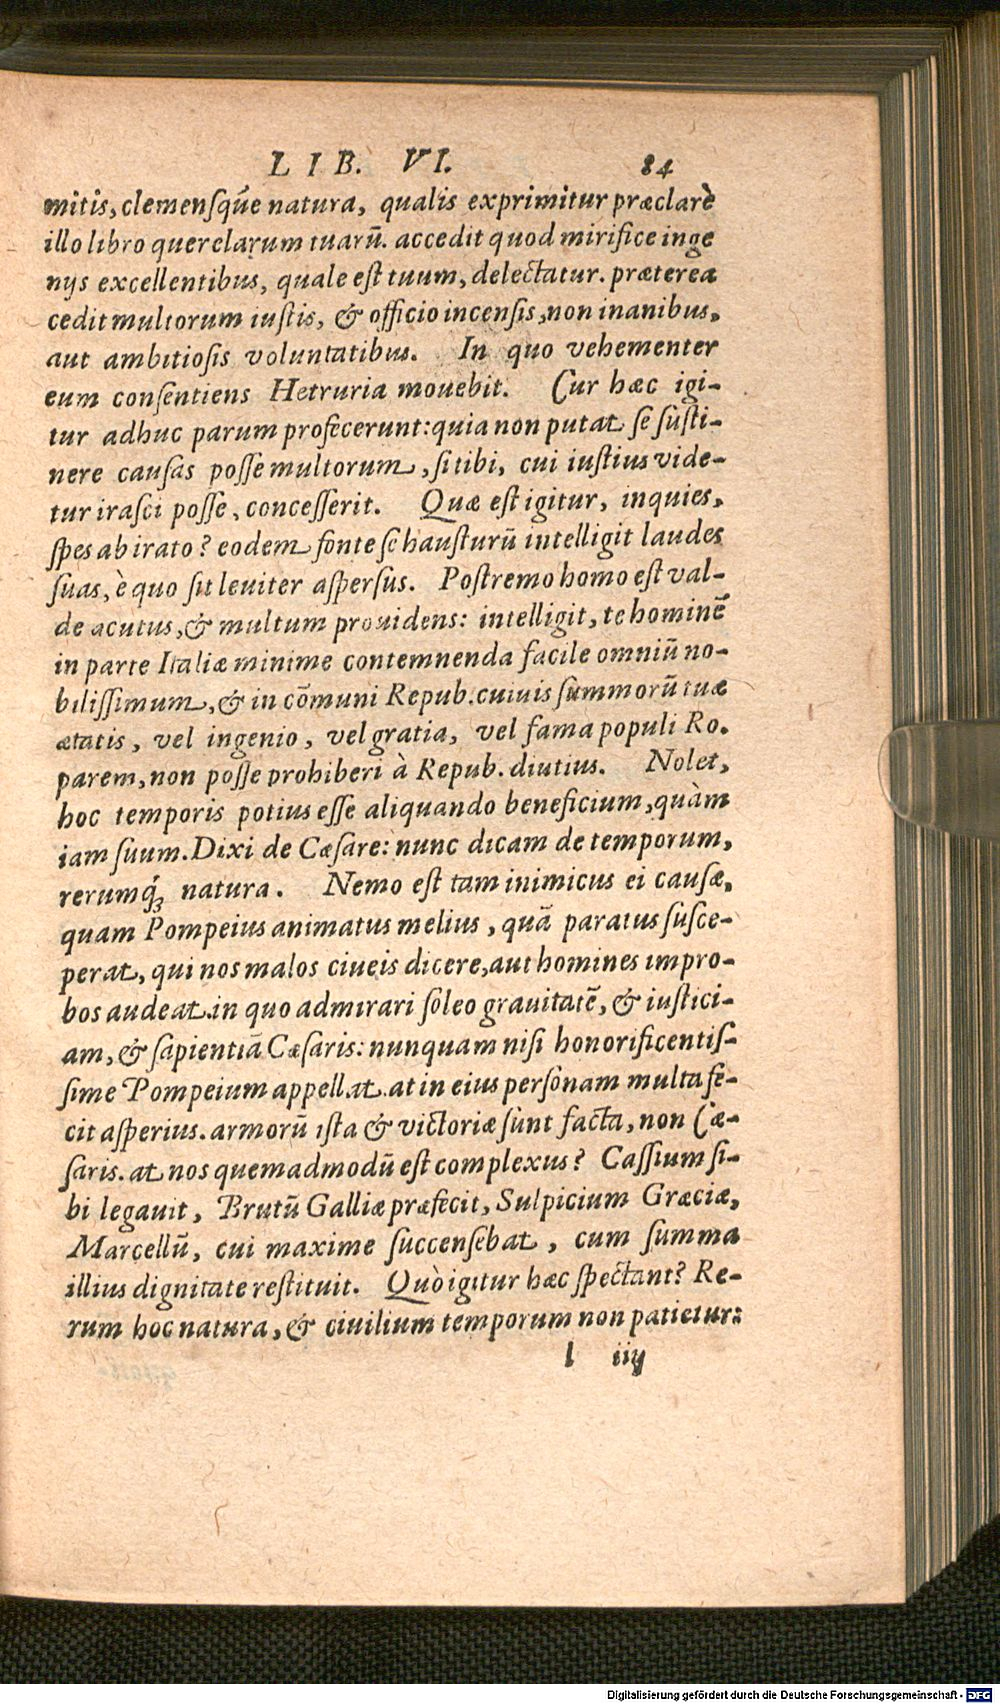 LIB. VI. 84
mitis, clemensq́ue natura, qualis exprimitur præclarè
illo libro querelarum tuarū. accedit quod mirifice inge
nijs excellentibus, quale est tuum, delectatur. præterea
cedit multorum iustis, & officio incensis, non inanibus,
aut ambitiosis voluntatibus. In quo vehementer
eum consentiens Hetruria mouebit. Cur hæc igi-
tur adhuc parum profecerunt: quia non putat se susti-
nere causas posse multorum, si tibi, cui iustius vide-
tur irasci posse, concesserit. Quæ est igitur, inquies,
spes ab irato? eodem fonte se hausturū intelligit laudes
suas, è quo sit leuiter aspersus. Postremo homo est val-
de acutus, & multum prouidens: intelligit, te hominē
in parte Italiæ minime contemnenda facile omniū no-
bilissimum, & in cōmuni Repub. cuiuis summorū tuæ
ætatis, vel ingenio, vel gratia, vel fama populi Ro.
parem, non posse prohiberi à Repub. diutius. Nolet,
hoc temporis potius esse aliquando beneficium, quàm
iam suum. Dixi de Cæsare: nunc dicam de temporum,
rerumq́ꝫ natura. Nemo est tam inimicus ei causæ,
quam Pompeius animatus melius, quā paratus susce-
perat, qui nos malos ciueis dicere, aut homines impro-
bos audeat. in quo admirari soleo grauitatē, & iustici-
am, & sapientiā Cæsaris: nunquam nisi honorificentis-
sime Pompeium appellat. at in eius personam multa fe-
cit asperius. armorū ista & victoriæ sunt facta, non Cæ-
saris. at nos quemadmodū est complexus? Cassium si-
bi legauit, Brutū Galliæ præfecit, Sulpicium Græciæ,
Marcellū, cui maxime succensebat, cum summa
illius dignitate restituit. Quò igitur hæc spectant? Re-
rum hoc natura, & ciuilium temporum non patietur:
l iiij
Digitalisierung gefördert durch die Deutsche Forschungsgemeinschaft - DFG